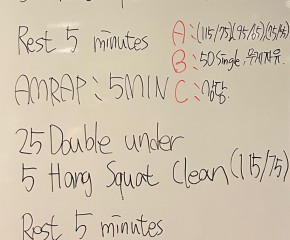 Rest 5 minutes
A: (115/75)(95/65)(75/55)
B: 50 Single, 무게자유.
AMRAP: 5MIN
C: 감당.
25 Double under
5 Hang Squat Clean (115/75)
Rest 5 minutes